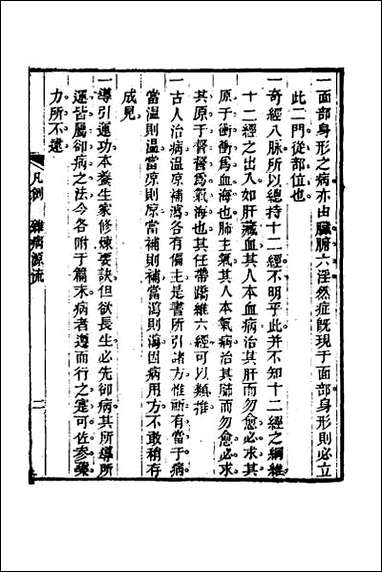 一面部身形之病亦由臟腑六淫然症旣現于面部身形則必立
此二門從部位也
一奇經八脉所以總持十二經不明乎此并不知十二經之綱維
十二經之出入如肝藏血其人本血病治其肝而勿愈必求其
原于衝衝爲血海也肺主氣其人本氣病治其肺而勿愈必求
其原于督督爲氣海也其任帶蹻維六經可以類推
一古人治病温凉補瀉各有偏主是書所引諸方惟期有當于病
當温則温當凉則凉當補則補當瀉則瀉因病用方不敢稍存
成見
一導引運功本養生家修煉要訣但欲長生必先却病其所導所
運皆屬却病之法今各附于篇末病者遵而行之寔可佐參藥
力所不逮
凡例 雜病源流 二